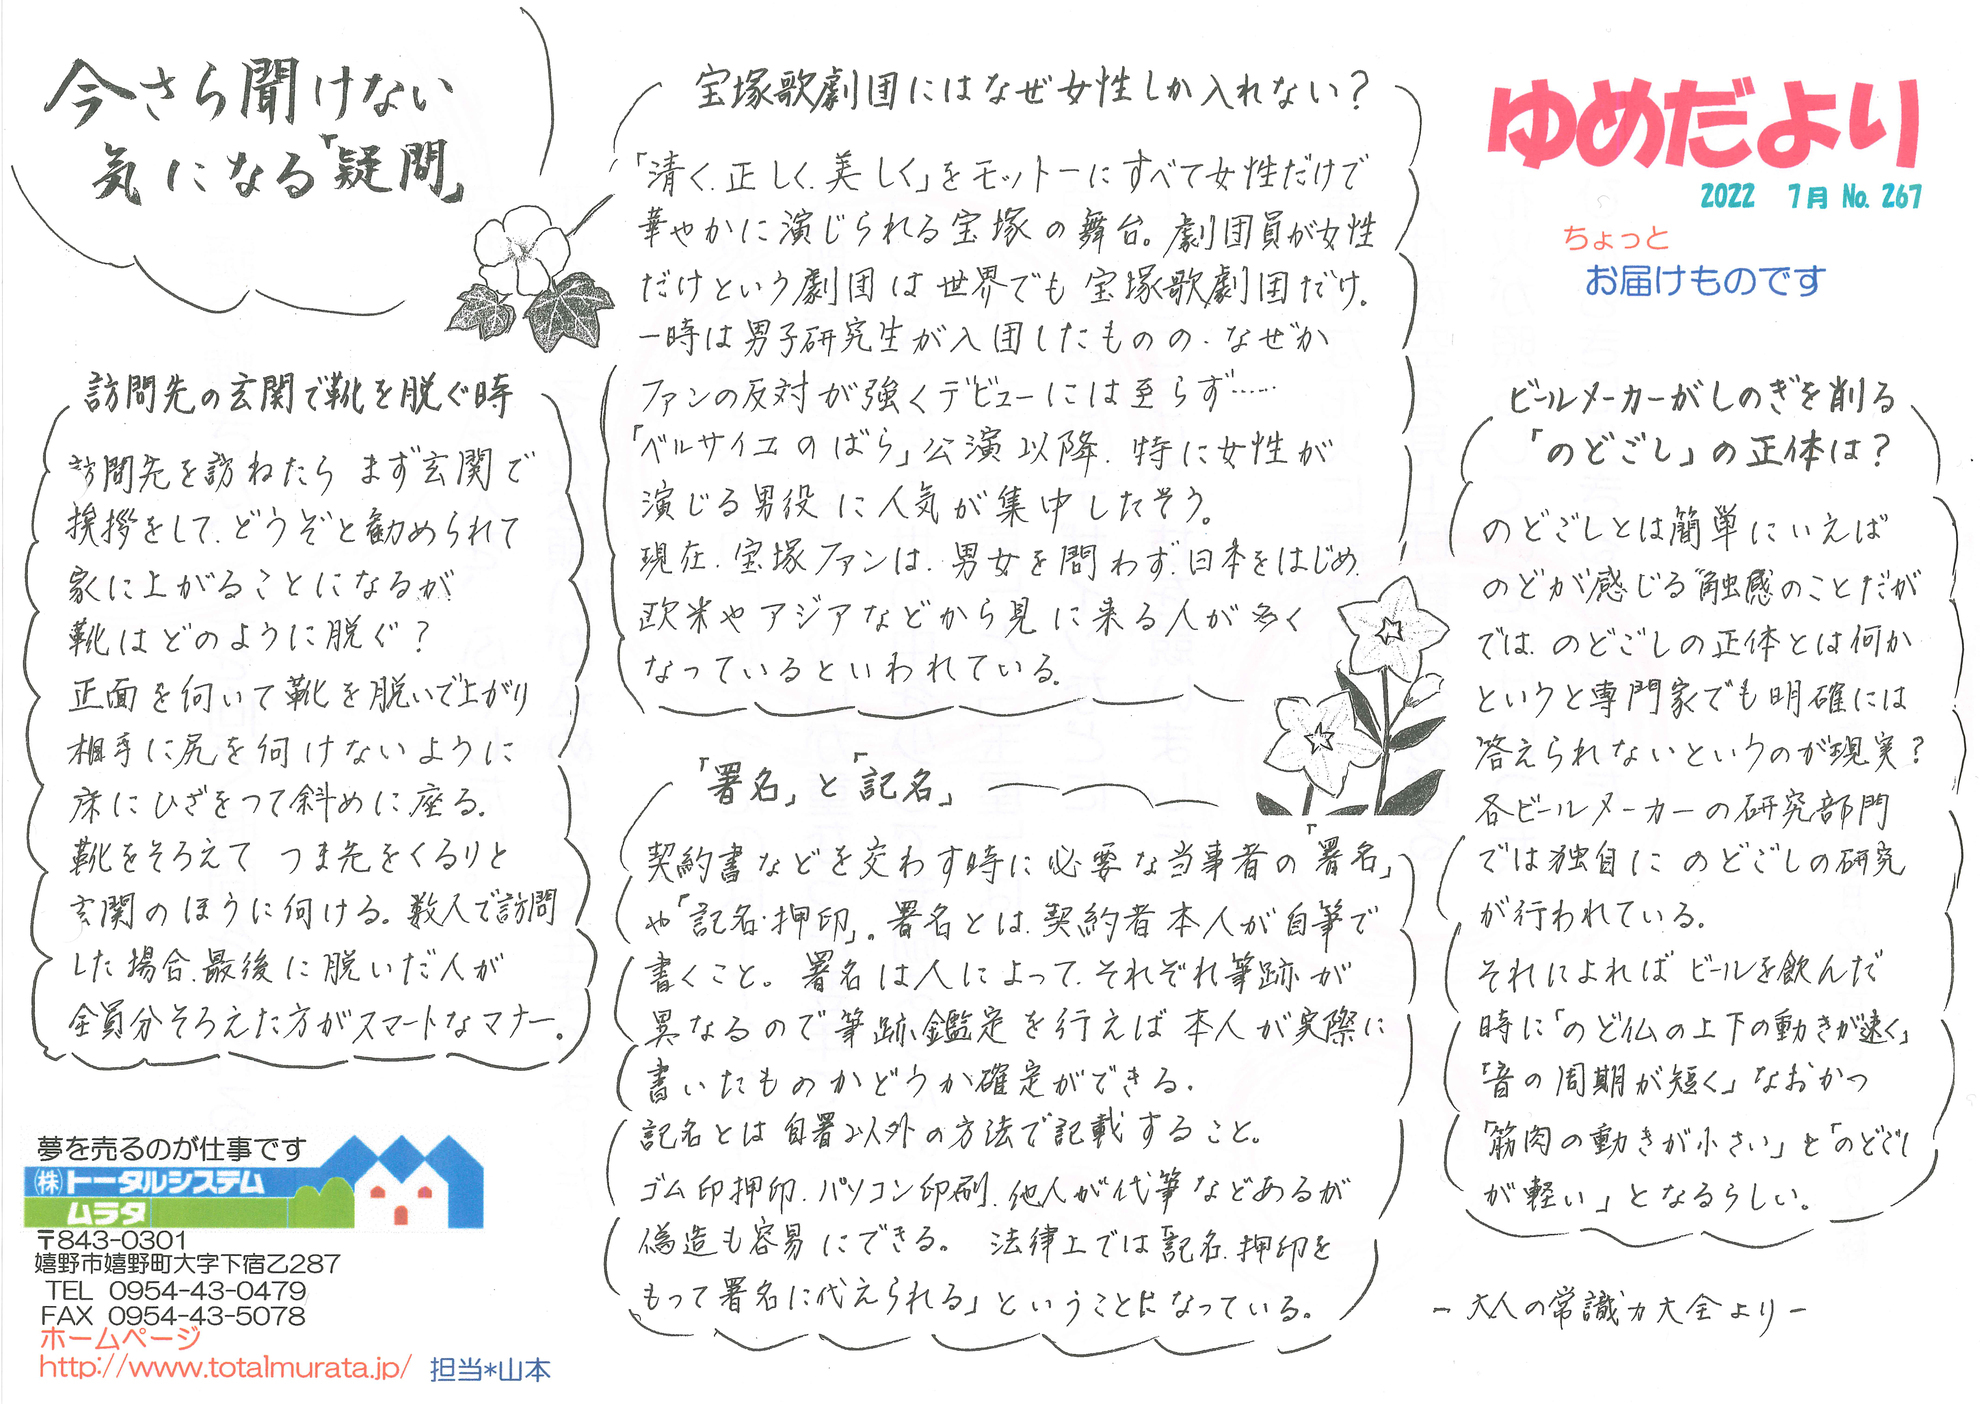 今さら聞けない
気になる「疑問」
訪問先の玄関で靴を脱ぐ時
訪問先を訪ねたら まず玄関で
挨拶をして、どうぞと勧められて
家に上がることになるが
靴はどのように脱ぐ?
正面を向いて靴を脱いで上がり
相手に尻を向けないように
床にひざをつて斜めに座る。
靴をそろえて つま先をくるりと
玄関のほうに向ける。数人で訪問
した場合、最後に脱いだ人が
全員分そろえた方がスマートなマナー。
夢を売るのが仕事です
㈱トータルシステム
ムラタ
〒843-0301
嬉野市嬉野町大字下宿乙287
TEL 0954-43-0479
FAX 0954-43-5078
ホームページ
http://www.totalmurata.jp/ 担当*山本
宝塚歌劇団にはなぜ女性しか入れない?
「清く、正しく、美しく」をモットーにすべて女性だけで
華やかに演じられる宝塚の舞台。劇団員が女性
だけという劇団は世界でも宝塚歌劇団だけ。
一時は男子研究生が入団したものの、なぜか
ファンの反対が強くデビューには至らず……
「ベルサイユのばら」公演以降、特に女性が
演じる男役に人気が集中したそう。
現在、宝塚ファンは、男女を問わず、日本をはじめ、
欧米やアジアなどから見に来る人が多く
なっているといわれている。
「署名」と「記名」
契約書などを交わす時に必要な当事者の「署名」
や「記名・押印」。署名とは、契約者本人が自筆で
書くこと。 署名は人によって、それぞれ筆跡が
異なるので筆跡鑑定を行えば本人が実際に
書いたものかどうか確定ができる。
記名とは自署以外の方法で記載すること。
ゴム印押印、パソコン印刷、他人が代筆などあるが
偽造も容易にできる。 法律上では「記名、押印を
もって署名に代えられる」ということになっている。
ゆめだより
2022 7月 No. 267
ちょっと
お届けものです
ビールメーカーがしのぎを削る
「のどごし」の正体は?
のどごしとは簡単にいえば
のどが感じる触感のことだが
では、のどごしの正体とは何か
というと専門家でも明確には
答えられないというのが現実?
各ビールメーカーの研究部門
では独自に のどごしの研究
が行われている。
それによれば ビールを飲んだ
時に「のど仏の上下の動きが速く」
「音の周期が短く」なおかつ
「筋肉の動きが小さい」と「のどごし
が軽い」となるらしい。
- 大人の常識力大全より -